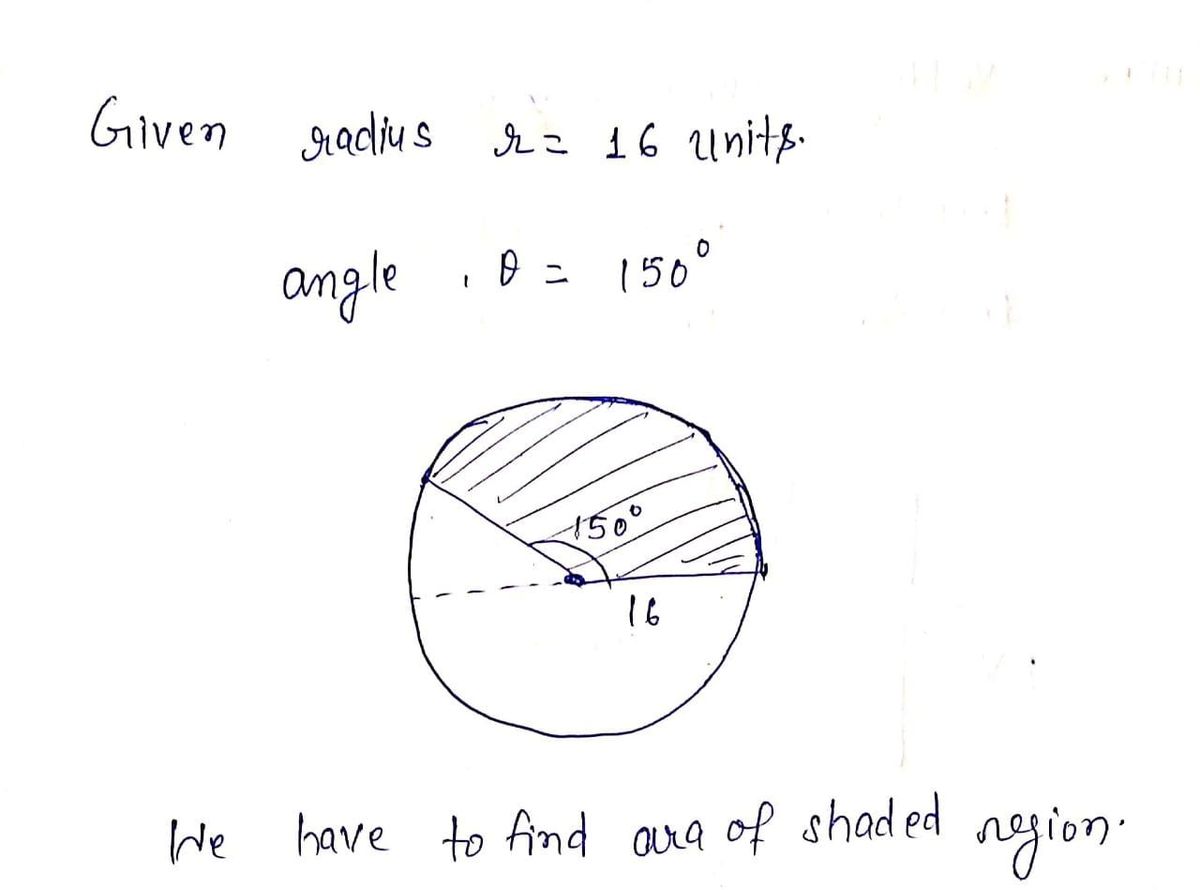 Given radius r = 16 Units.
angle , θ = 150°
150°
16
We have to find ara of shaded region.